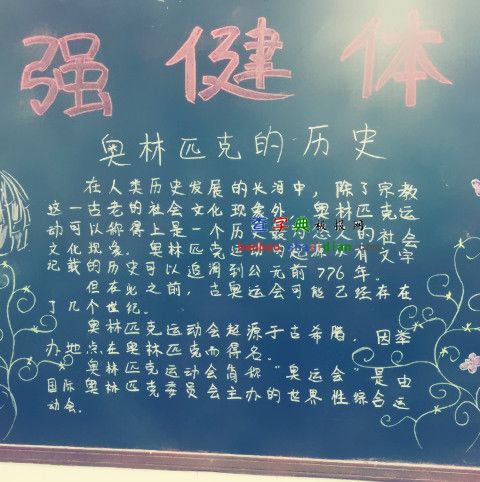 强健体
奥林匹克的历史
在人类历史发展的长河中，除了宗教
这一古老的社会文化现象外，奥林匹克运
动可以称得上是一个历史最为的社会
文化现象。奥林匹克运动的起源及有文字
记载的历史可以追溯到公元前776年。
但在此之前，古奥运会可能已经存在
了几个世纪。
奥林匹克运动会起源于古希腊，因举
办地点在奥林匹克而得名。
奥林匹克运动会简称“奥运会”是由
国际奥林匹克委员会主办的世界性综合运
动会。
查字典板报网
banbao.chazidian.com